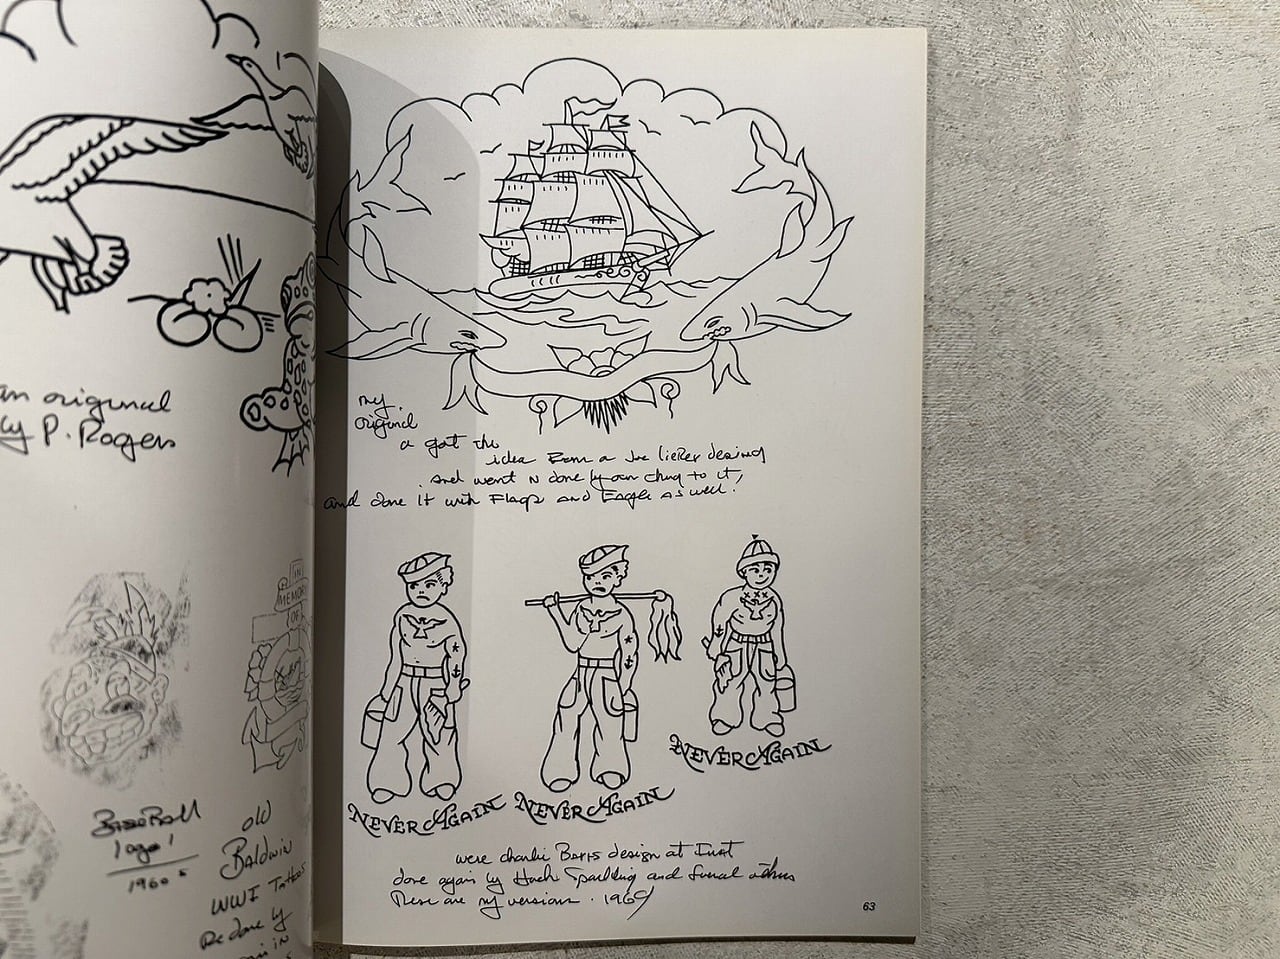 an original
by P. Rogers
BaseBall
logo!
1960s
IN
MEMORY
OF
old
Baldwin
WWI Tattoos
Re done by
in
my
original
a got the
idea From a Joe lieber desing
and went N done by own thing to it,
and done it with Flags and Eagle as well.
NEVER AGAIN
NEVER AGAIN
NEVER AGAIN
were charlie Barrs design at First
done again by Huck Spaulding and Several others
These are my versions. 1969
63